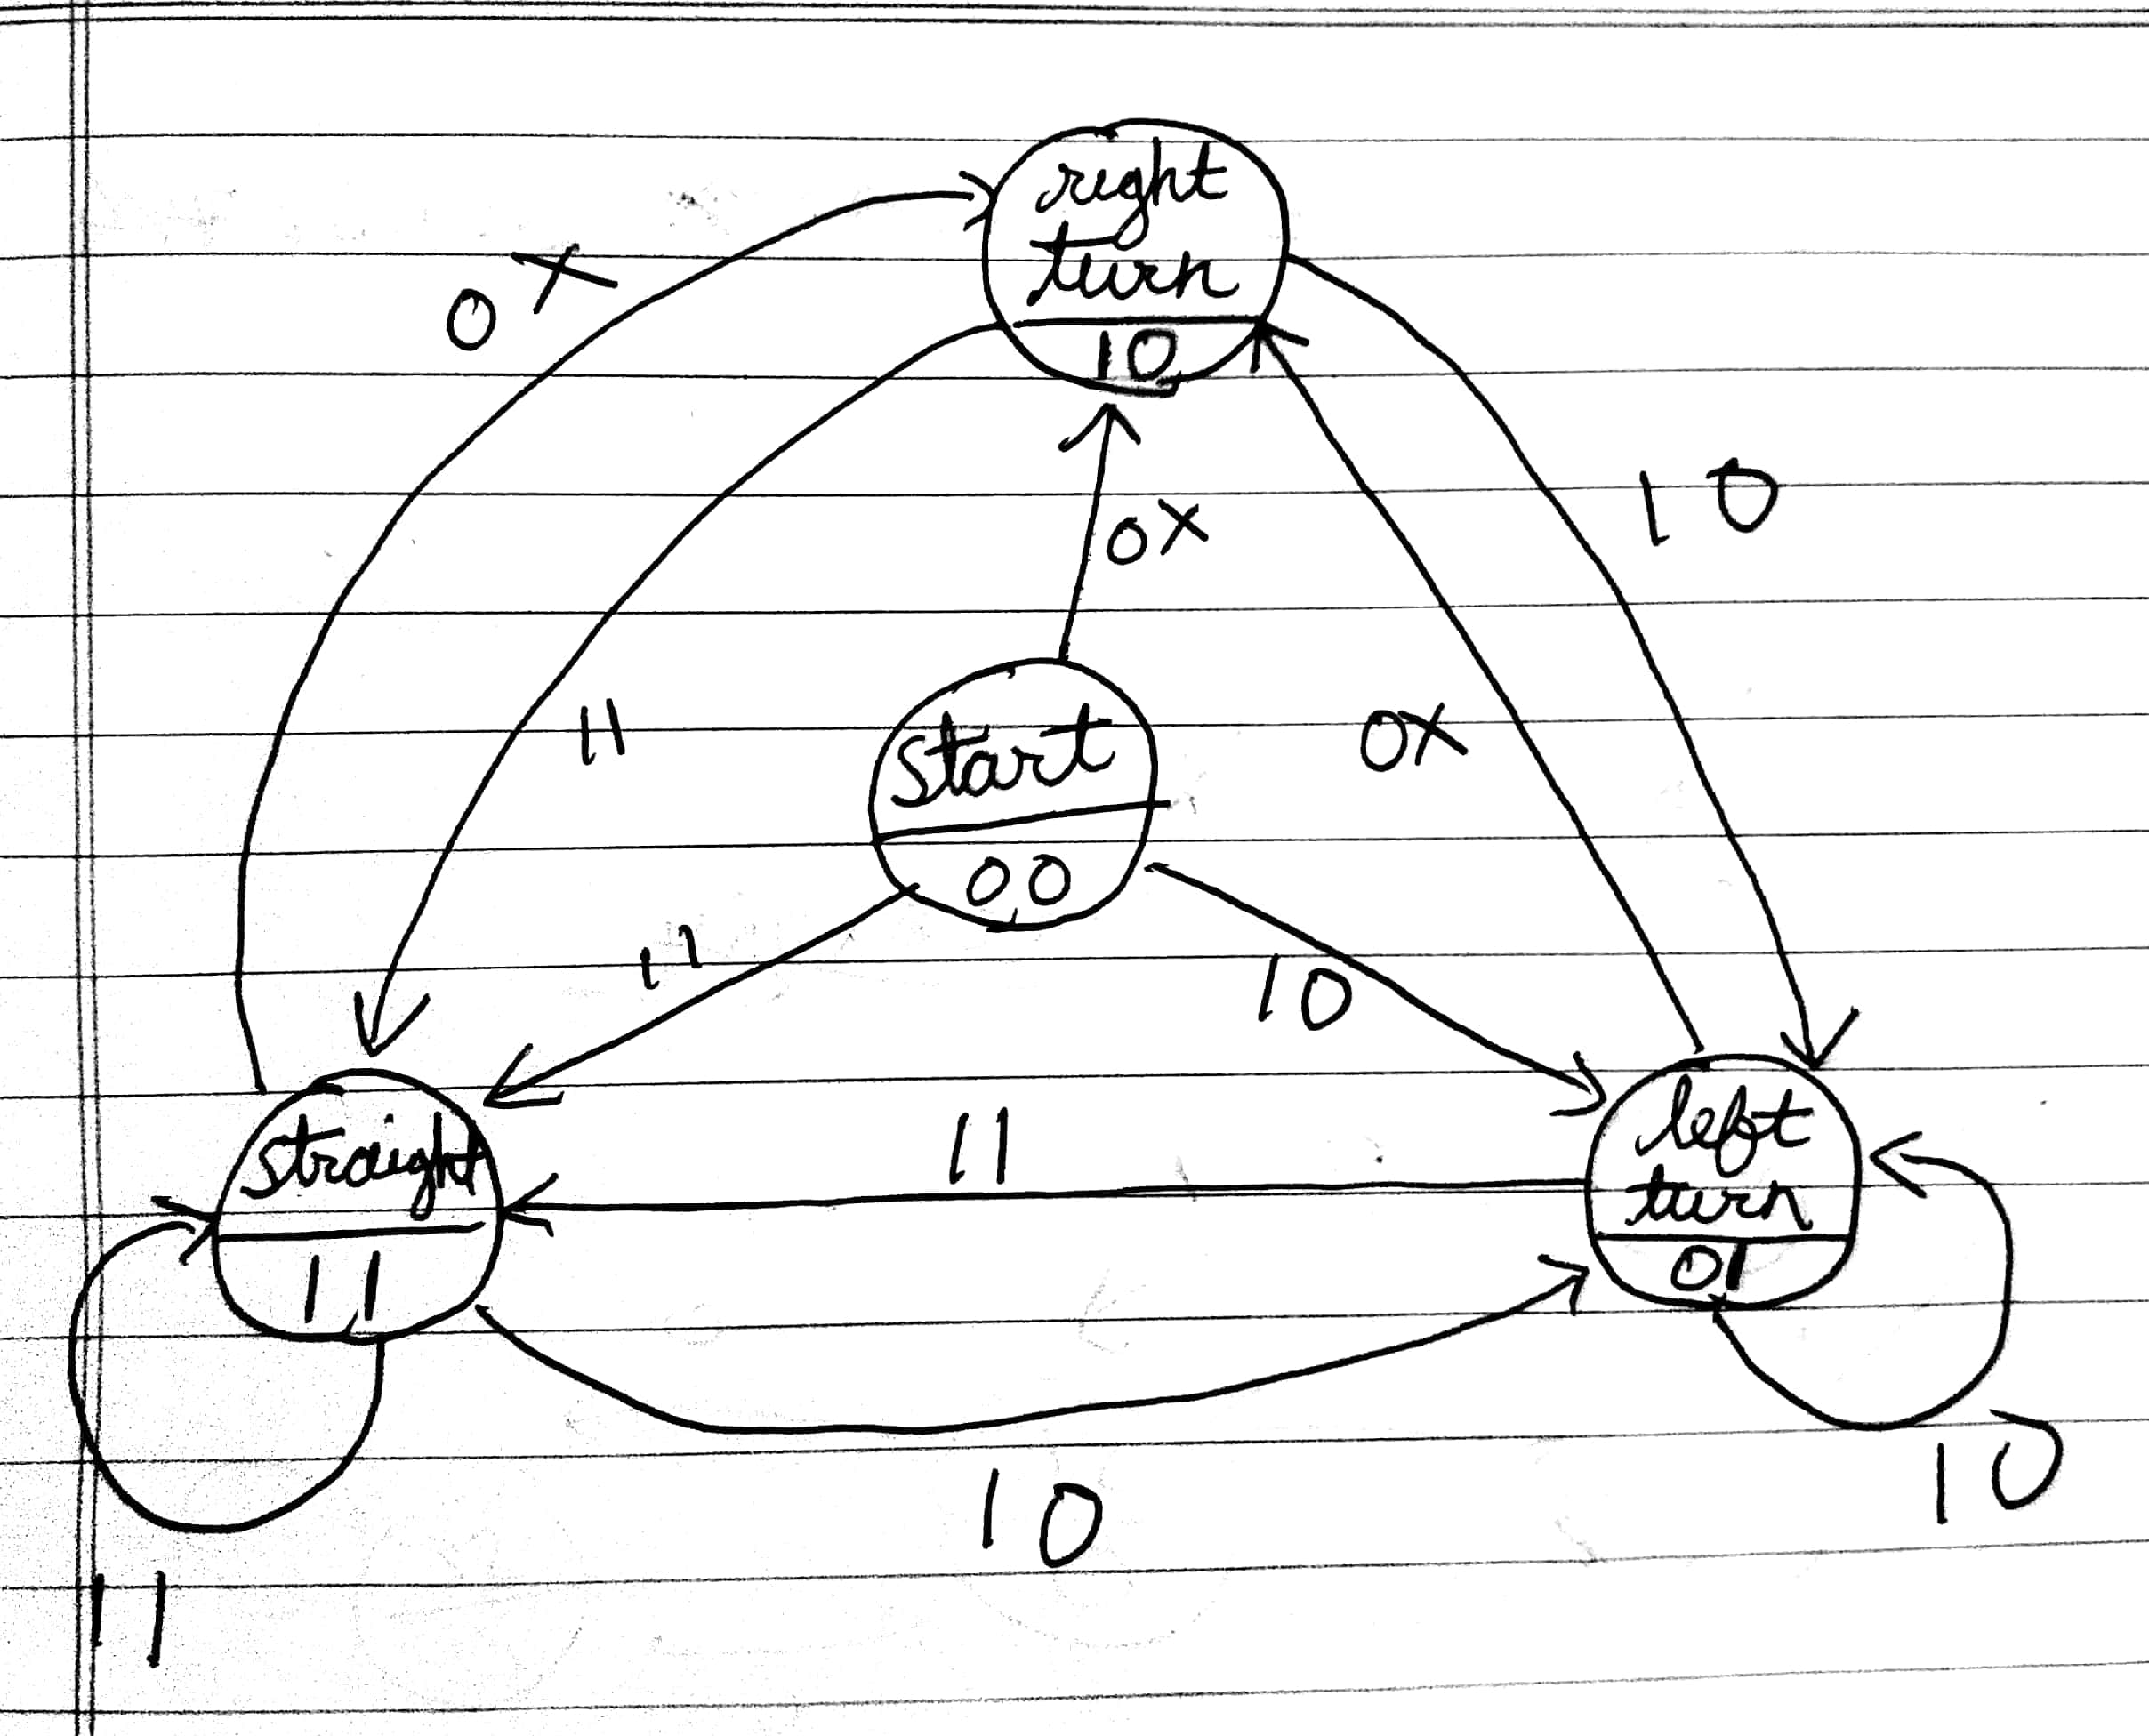 right
turn
10
0X
10
0X
11
0X
start
00
11
10
straight
11
11
left
turn
01
10
10
11